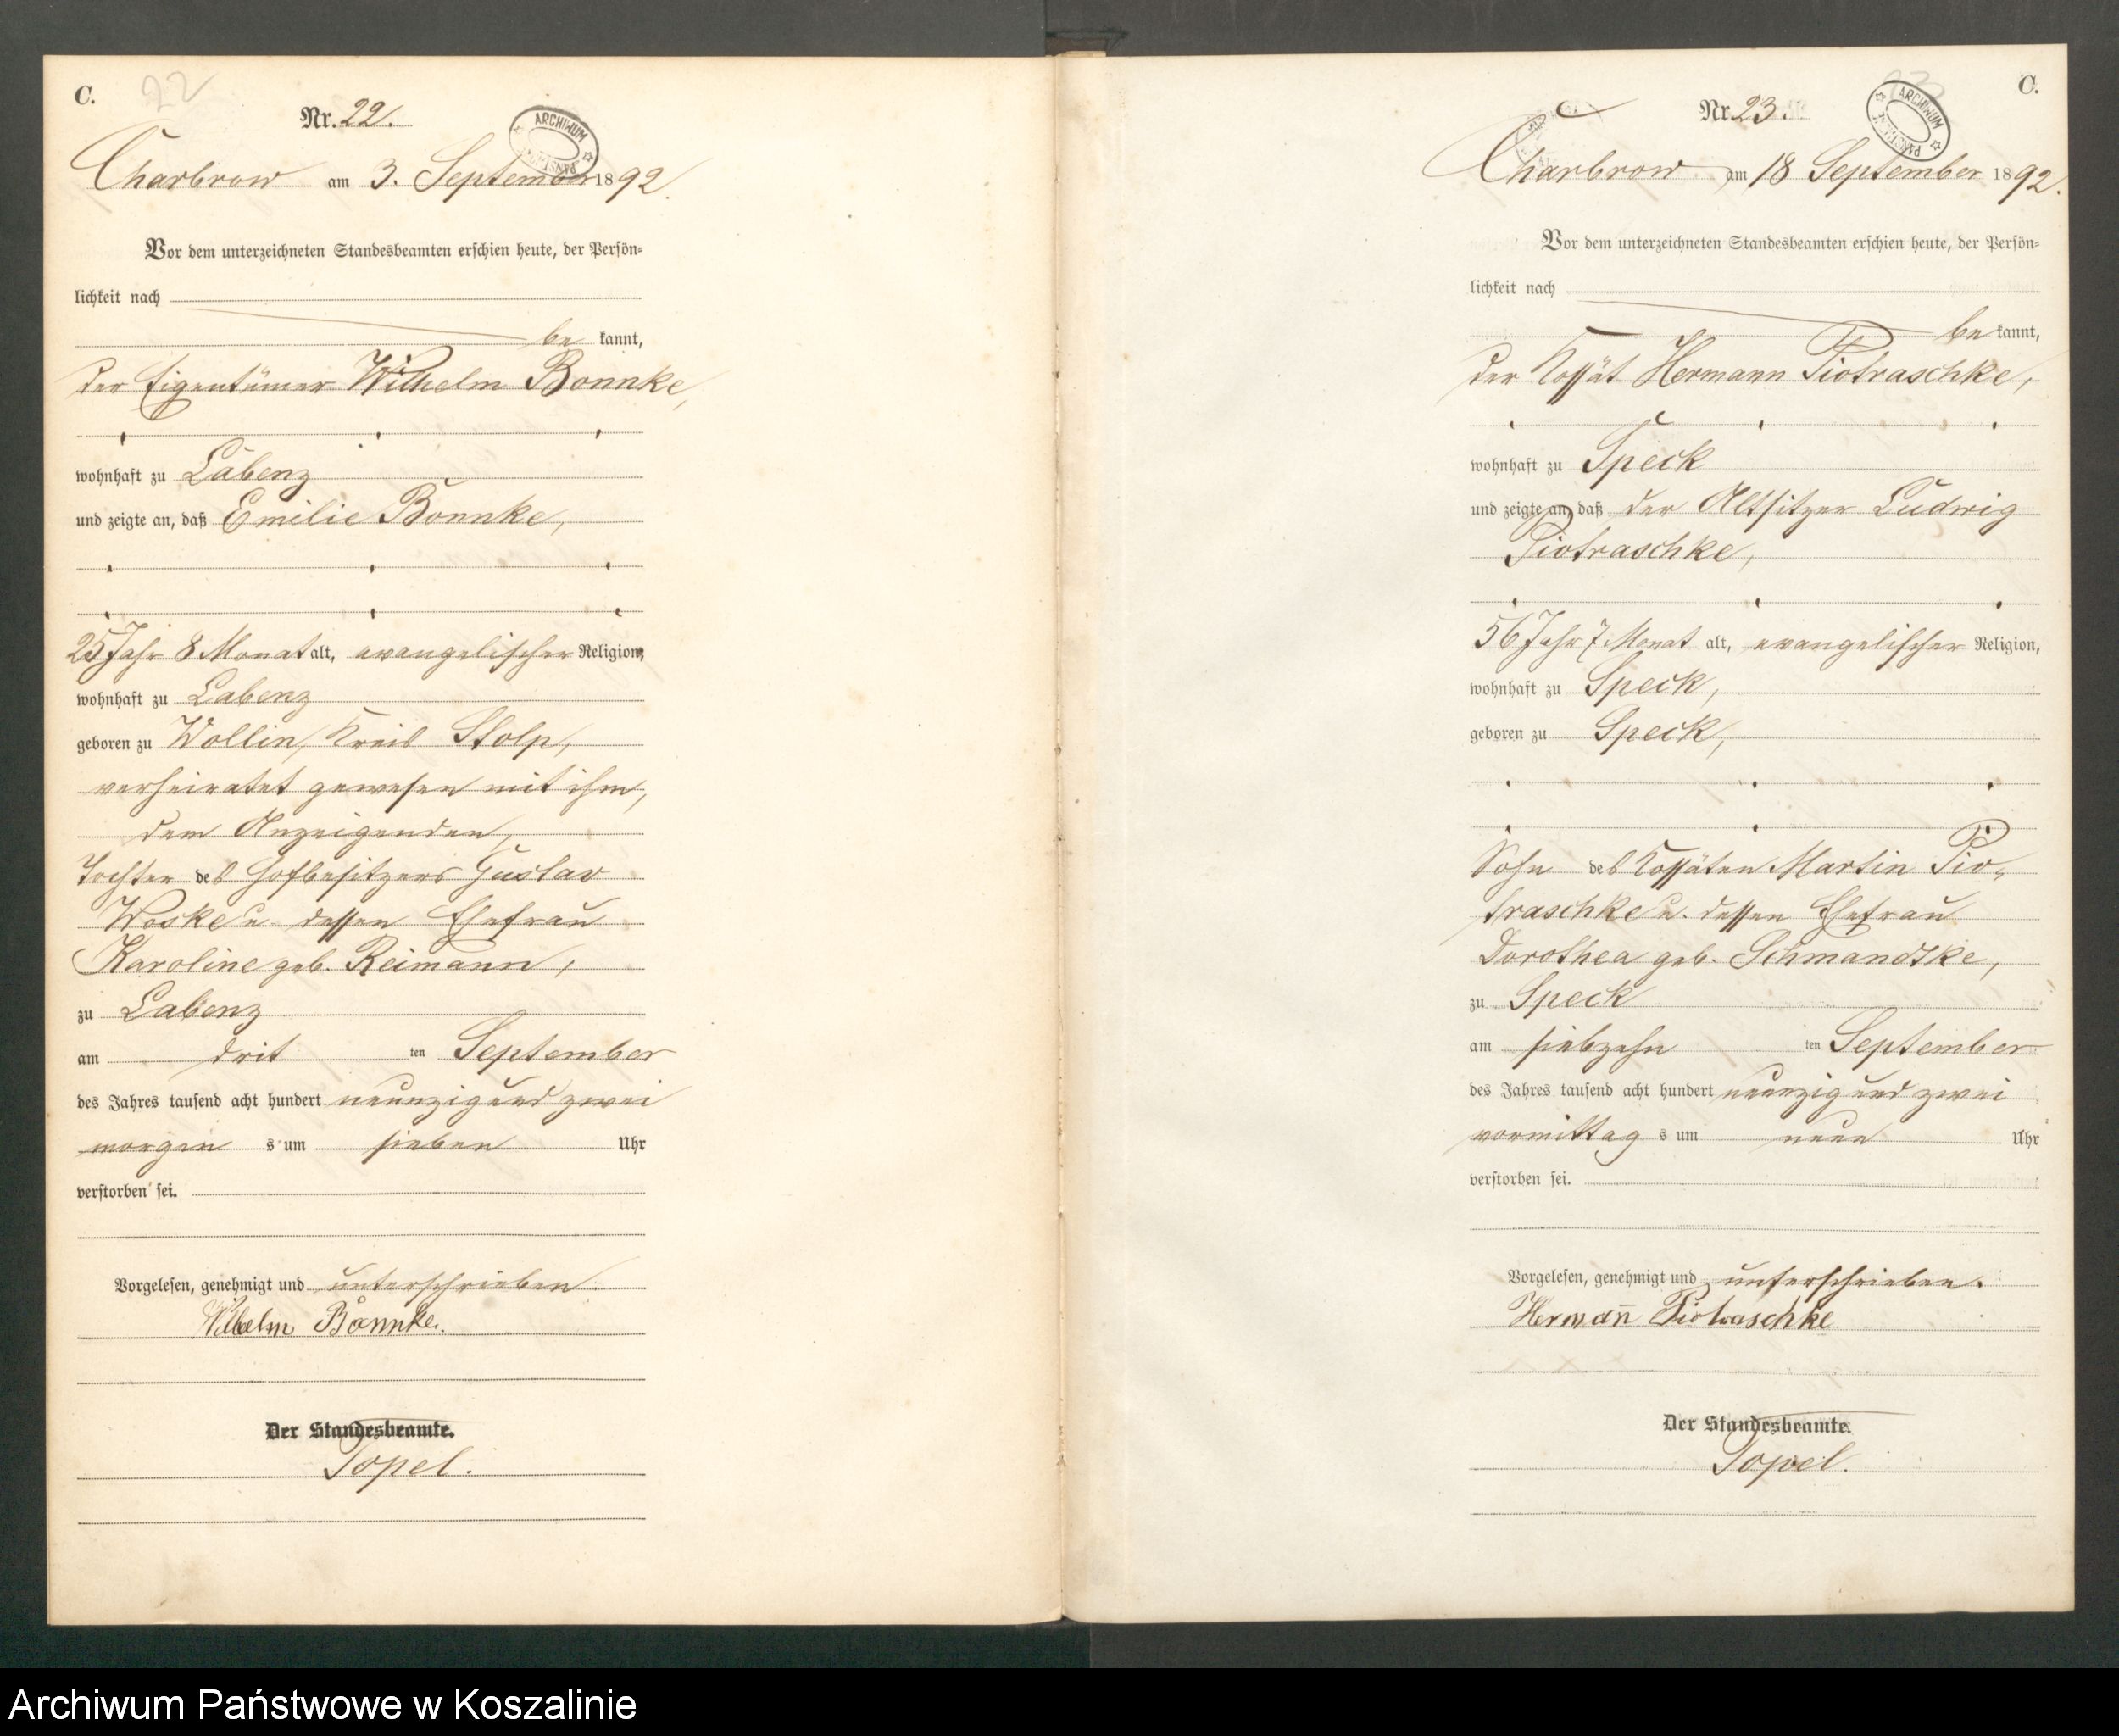 C.
22
Nr. 22.
ARCHIWUM
Charbrow am 3. September 1892.
Vor dem unterzeichneten Standesbeamten erschien heute, der Persön=
lichkeit nach
be kannt,
der Eigentümer Wilhelm Bonnke,
wohnhaft zu Labenz
und zeigte an, daß Emilie Bonnke,
25 Jahr 8 Monat alt, evangelischer Religion,
wohnhaft zu Labenz
geboren zu Wollin, Kreis Stolp,
verheiratet gewesen mit ihm,
dem Anzeigenden,
Tochter des Hofbesitzers Gustav
Woske u. dessen Ehefrau
Karoline geb. Reimann,
zu Labenz
am drit ten September
des Jahres tausend acht hundert neunzig und zwei
morgen s um sieben Uhr
verstorben sei.
Vorgelesen, genehmigt und unterschrieben.
Wilhelm Bonnke.
Der Standesbeamte.
Topel.
C.
Nr. 23.
ARCHIWUM
Charbrow am 18 September 1892.
Vor dem unterzeichneten Standesbeamten erschien heute, der Persön=
lichkeit nach
be kannt,
der Kossät Hermann Piotraschke,
wohnhaft zu Speck
und zeigte an, daß der Altsitzer Ludwig
Piotraschke,
56 Jahr 7 Monat alt, evangelischer Religion,
wohnhaft zu Speck,
geboren zu Speck,
Sohn des Kossäten Martin Pio=
traschke u. dessen Ehefrau
Dorothea geb. Schmandtke,
zu Speck
am siebzehn ten September
des Jahres tausend acht hundert neunzig und zwei
vormittag s um neun Uhr
verstorben sei.
Vorgelesen, genehmigt und unterschrieben.
Hermann Piotraschke
Der Standesbeamte.
Topel.
Archiwum Państwowe w Koszalinie